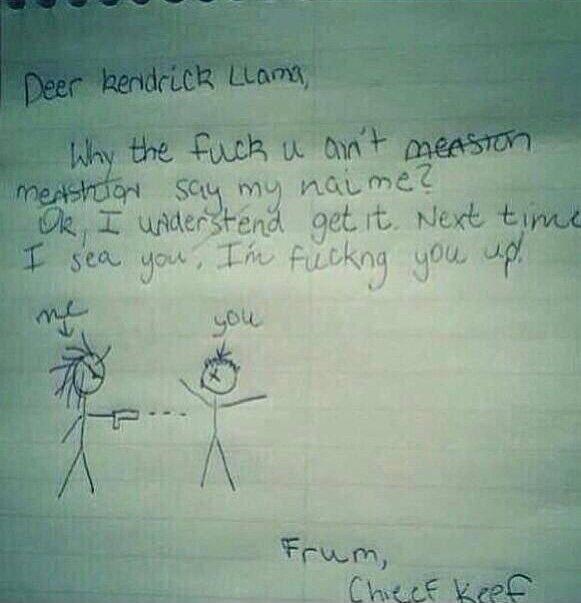 Deer kendrick Llama,
Why the fuck u ain't meastion
meashtion say my naime?
Ok, I understend get it. Next time
I sea you, I'm fuckng you up!
me
you
Frum,
Chieef Keef